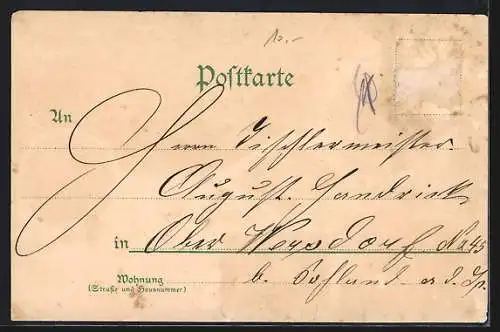 10.-
Postkarte
An
Herrn Tischlermeister
August Handrick
in Ober
No 45
Wohnung
(Straße und Hausnummer)
b. Sohland a. d. Sp.